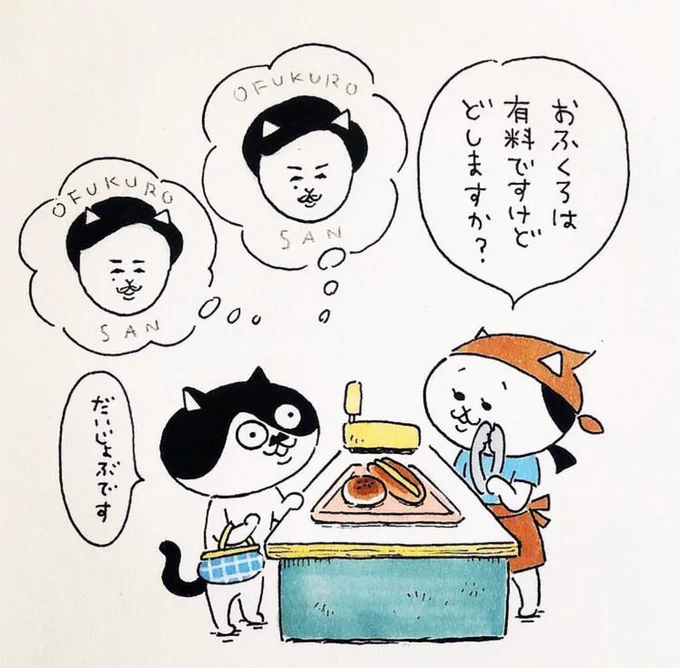 おふくろは
有料ですけど
どしますか?
OFUKURO
SAN
OFUKURO
SAN
だいじょぶです